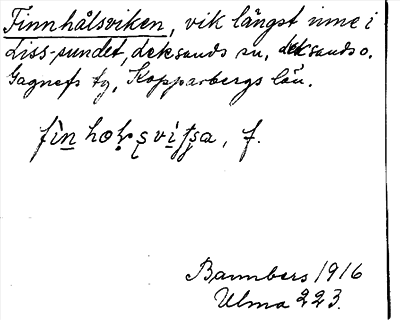 Finnhålsviken, vik längst inne i
Liss-sundet, Leksands sn, Leksands o.
Gagnefs tg, Kopparbergs län.
f.
Bannbers 1916
Ulma 223.